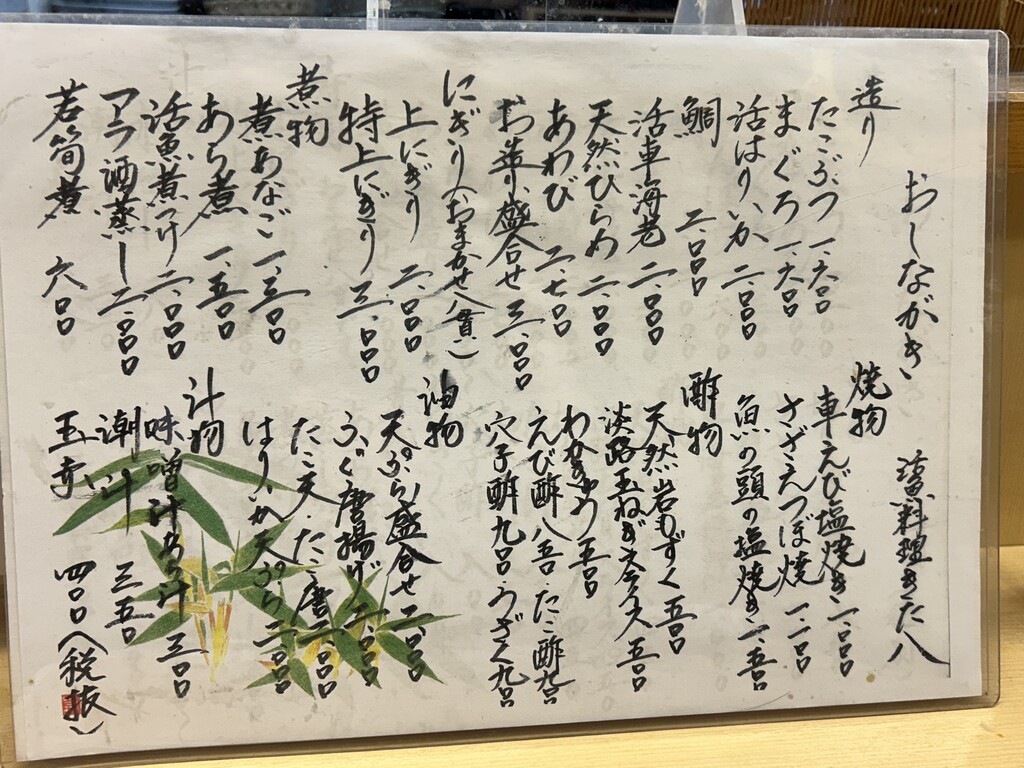 おしながき
活魚料理きた八
造り
たこぶつ 一、六〇〇
まぐろ 一、六〇〇
活はりいか 二、〇〇〇
鯛 二、〇〇〇
活車海老 二、〇〇〇
天然ひらめ 二、〇〇〇
あわび 二、七〇〇
お造り盛合せ 三、〇〇〇
にぎり(おまかせ八貫)
上にぎり 二、〇〇〇
特上にぎり 三、〇〇〇
煮物
煮あなご 一、三〇〇
あら煮 一、五〇〇
活魚煮つけ 二、〇〇〇
アラ酒蒸し 二、〇〇〇
若筍煮 六〇〇
焼物
車えび塩焼き 二、〇〇〇
さざえつぼ焼 一、一〇〇
魚の頭の塩焼き 一、五〇〇
酢物
天然岩もずく 五〇〇
淡路玉ねぎスライス 五〇〇
わかめ 五〇〇
えび酢 八五〇・たこ酢 九〇〇
穴子酢 九〇〇・うざく 九〇〇
油物
天ぷら盛合せ 二、〇〇〇
ふぐ唐揚げ 二、〇〇〇
たこ天・たこ唐
はりいか天ぷら
汁物
味噌汁・赤だし 三〇〇
潮汁 三五〇
玉寺 四〇〇(税抜)